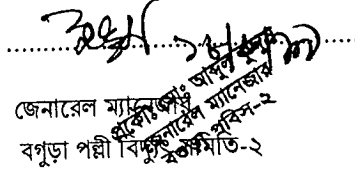 জেনারেল ম্যানেজার
বগুড়া পল্লী বিদ্যুৎ সমিতি-২
প্রকৌঃ মোঃ আব্দুল কুদ্দুস
জেনারেল ম্যানেজার
বগুড়া পবিস-২